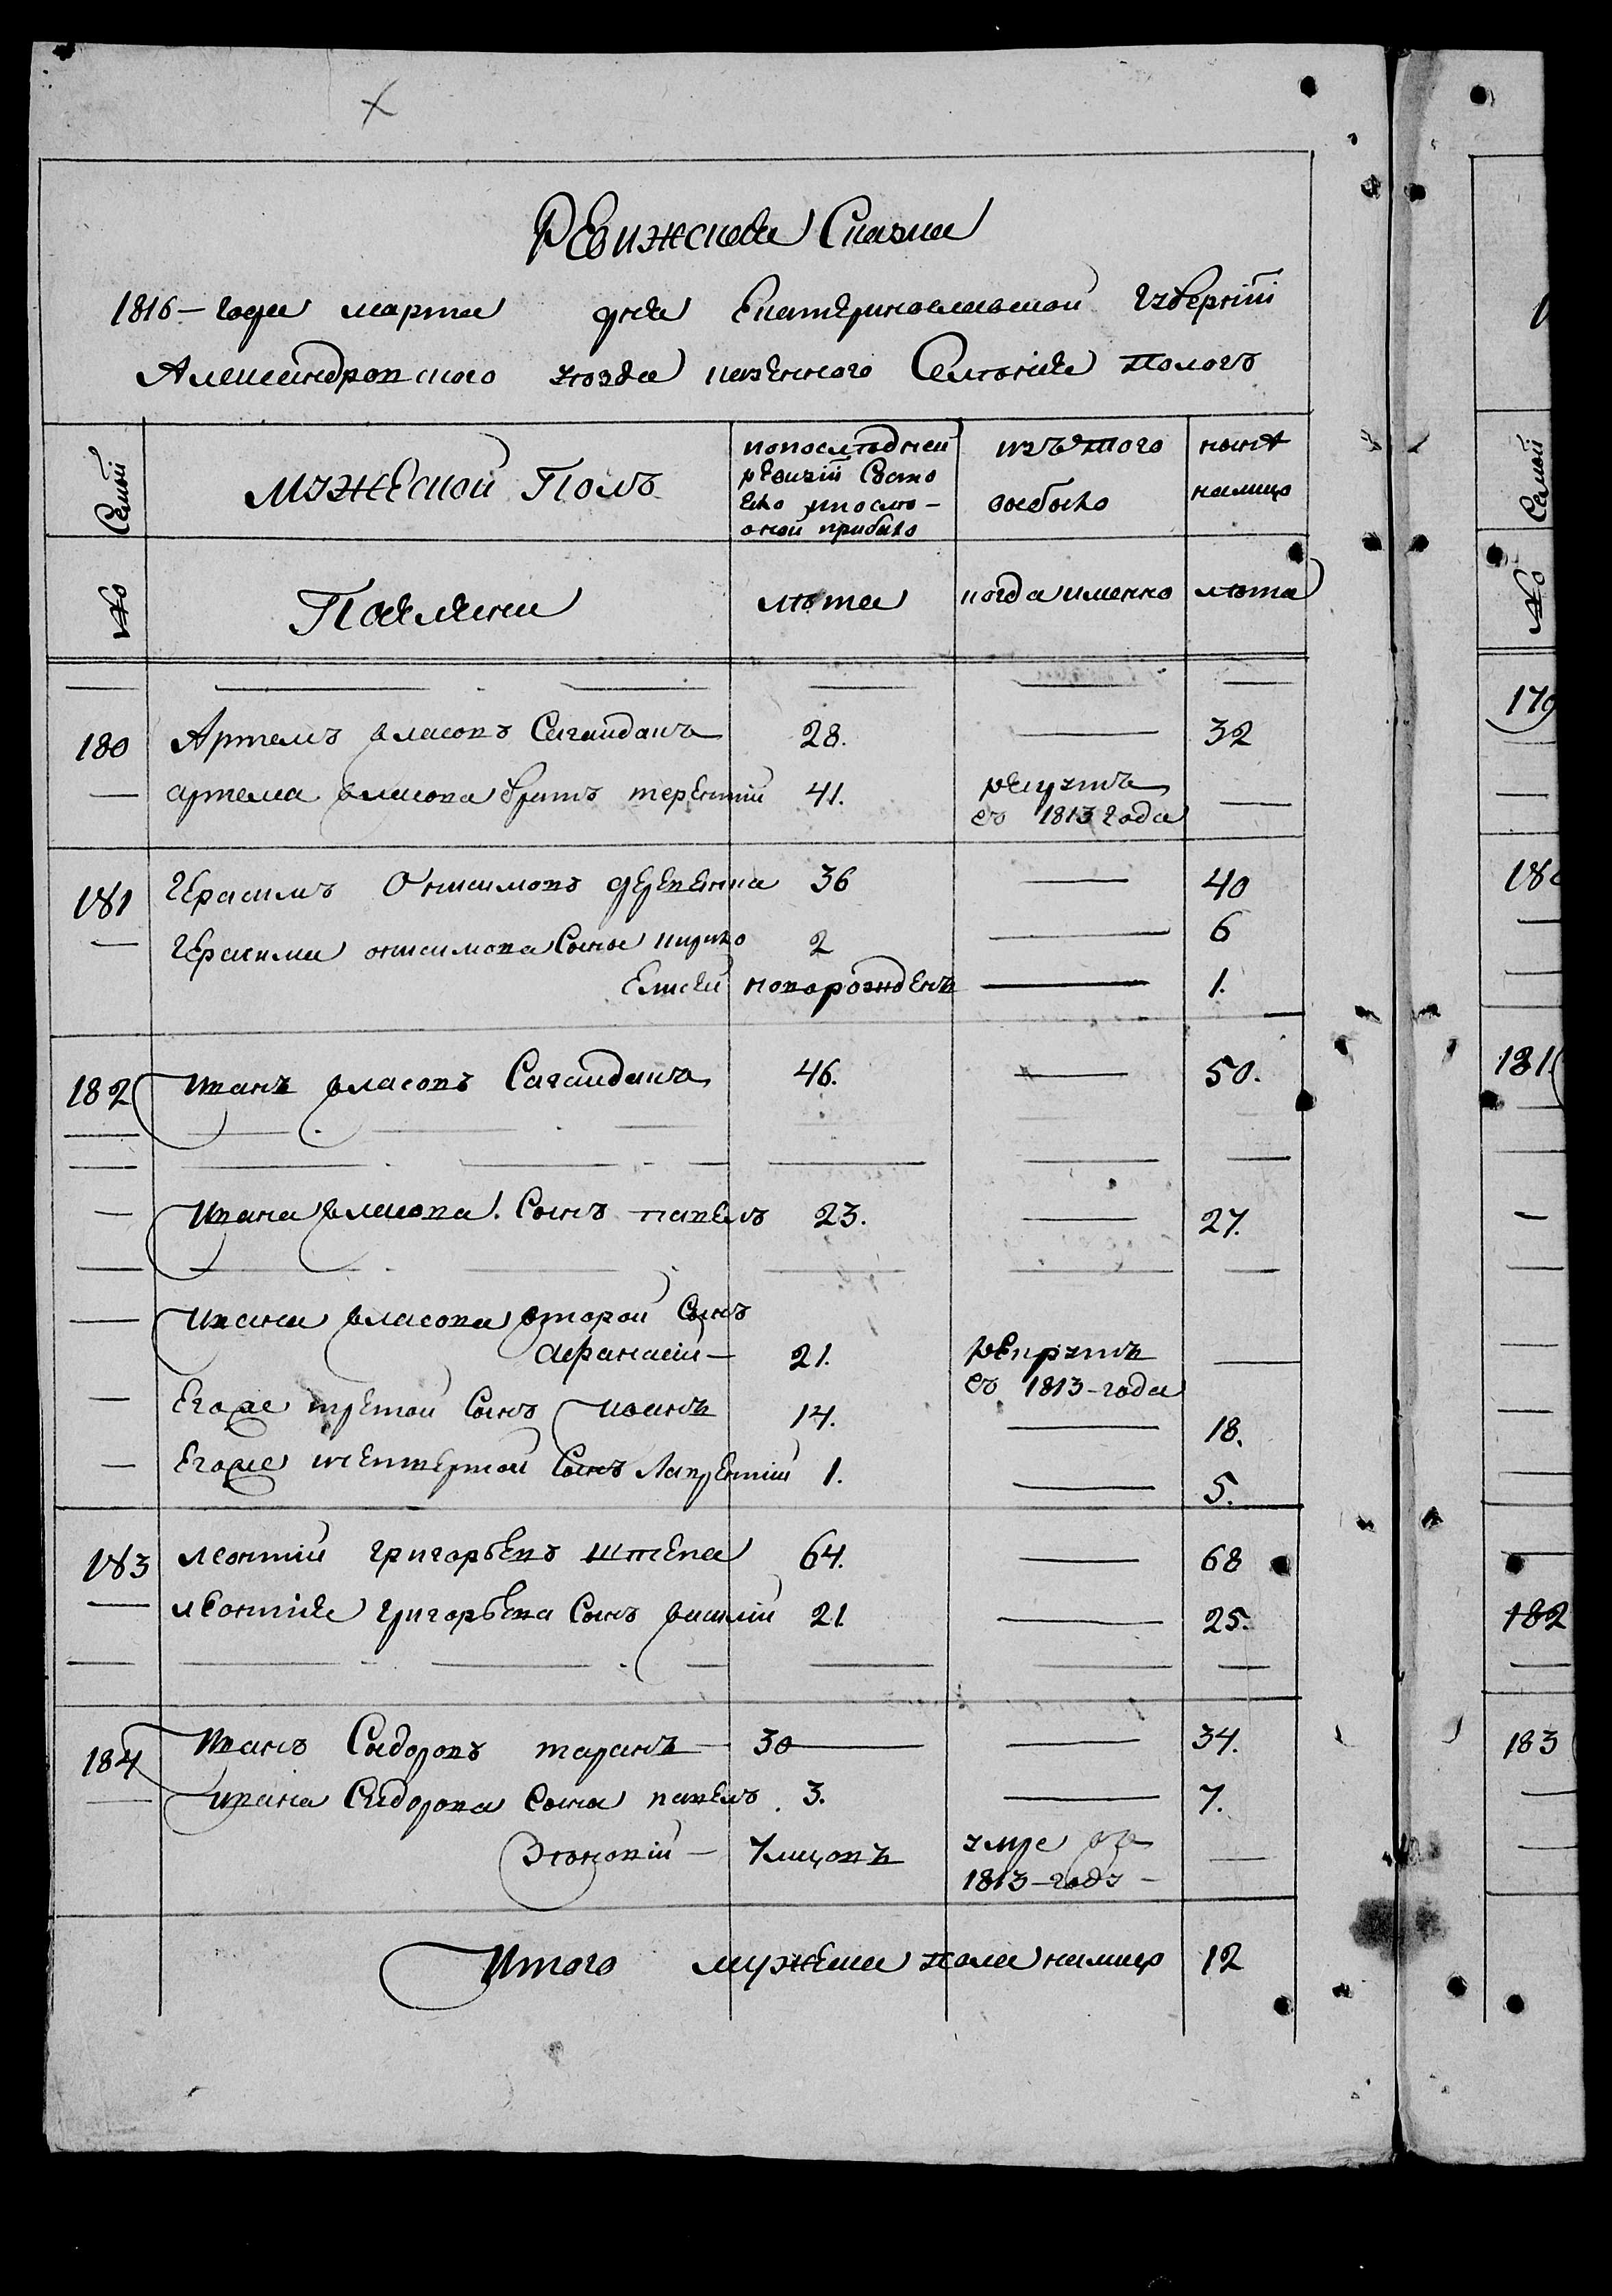 Ревижская Сказка
1816 – года марта дня Екатеринославской губернiи
Александровского уѣзда казенного Селѣнiя Пологъ
Семьи
мужеской Полъ
попослѣдней ревизiи Состояло ипослѣ – оной прибыло
изъ того выбыло
нынѣ налицо
№
Поселяни
лѣта
когда именно
лѣта
180 Артемъ власовъ Сагайдакъ 28. 32
артема власова братъ терентiй 41. рекрутъ
съ 1813 года
181 Герасимъ Онисимовъ деревенка 36 40
Герасима онисимова Сыны кирило 2 6
Елисей новорожденъ 1.
182 иванъ власовъ Сагайдакъ 46. 50.
ивана власова 1. Сынъ павелъ 23. 27.
ивана власова второй Сынъ
афанасiй – 21. рекрутъ
съ 1813 – года
Егоже третой Сынъ иванъ 14. 18.
Егоже четвертой Сынъ Лаврентiй 1. 5.
183 леонтiй григорьевъ штепа 64. 68
леонтiя григорьева Сынъ василiй 21 25.
184 иванъ Сидоровъ таранъ 30 34.
ивана Сидорова Сына павелъ 3. 7.
7 мицовъ умре въ
1813 – году –
Итого мужеска пола налицо 12
1
Семьи
№
179
180
181.
182
183